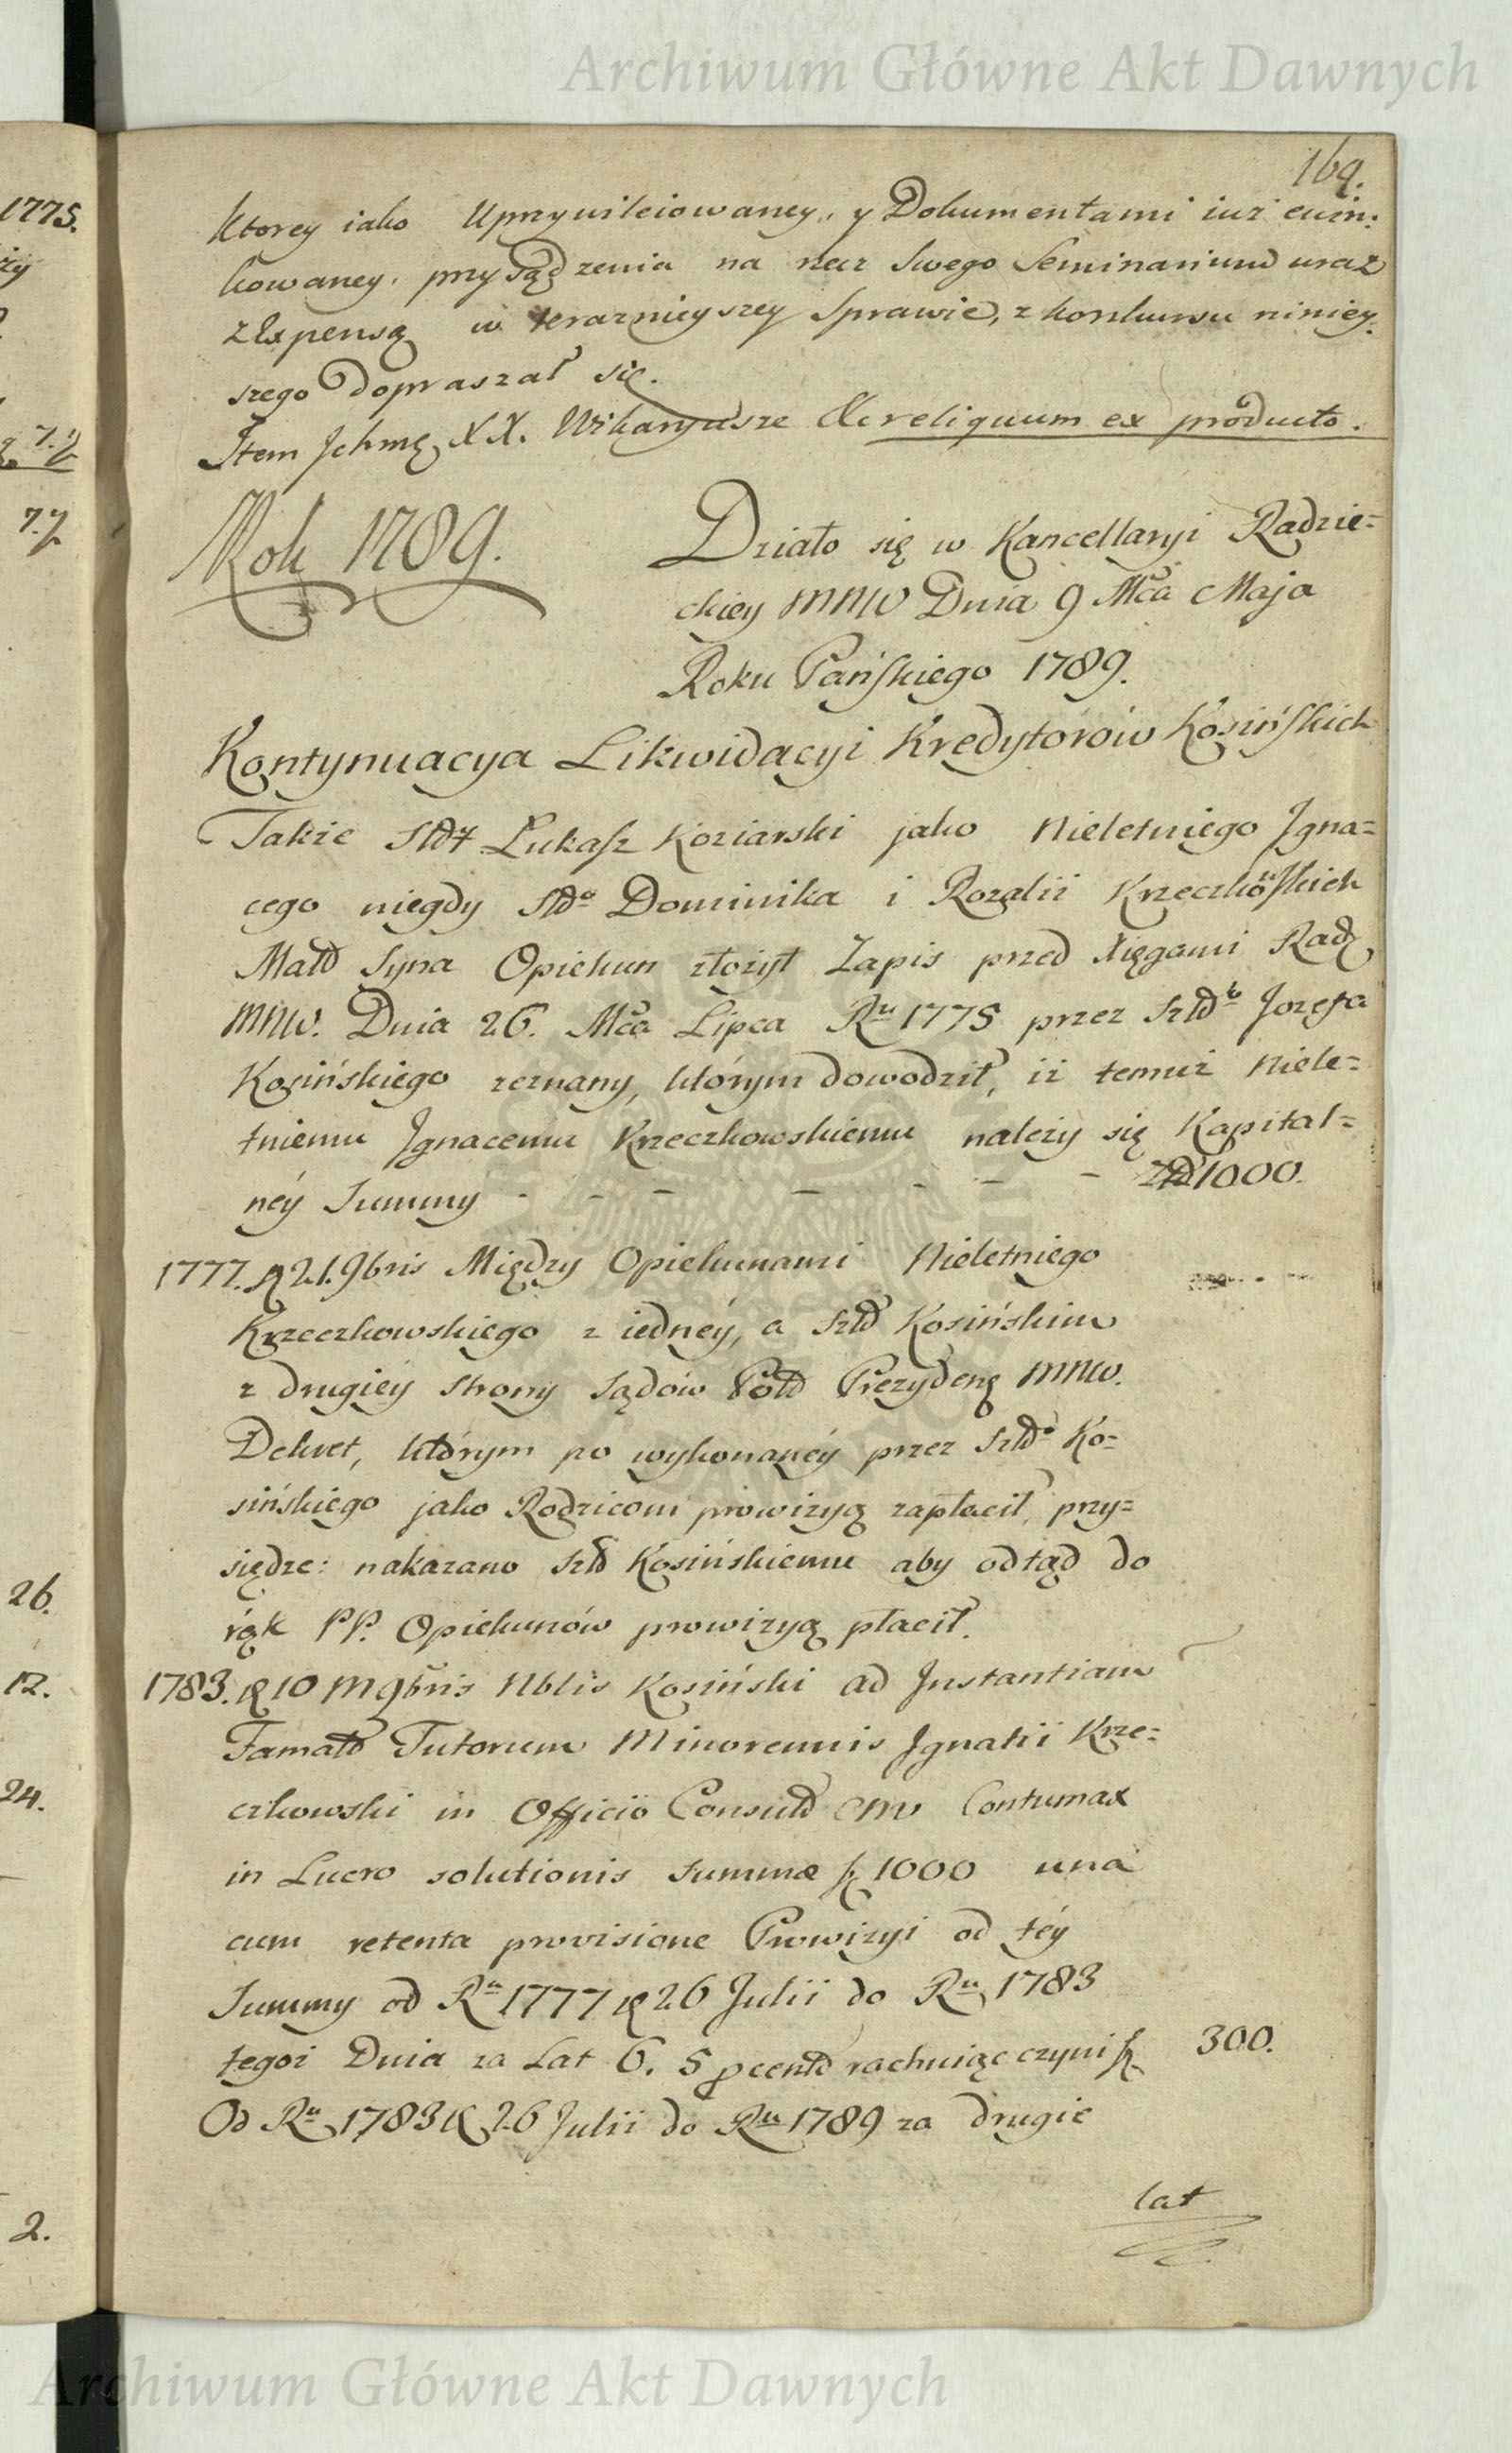 Archiwum Główne Akt Dawnych
169.
1775.
ktorey iako Uprzywileiowaney, y Dokumentami iuż ewin:
kowaney, przysądzenia na rzecz Swego Seminarium wraz
z Expensą w terazniejszey Sprawie, z konkursu niniey:
szego dopraszał się.
Item Jchmę XX. Wikaryusze &c reliquum ex producto.
Rok 1789.
Działo się w Kancellaryi Radzie=
ckiey MNW Dnia 9 Mca Maja
Roku Pańskiego 1789.
Kontynuacya Likwidacyi Kredytorów Kosińskich
Także Łukasz Koziarski jako Nieletniego Igna=
cego niegdy Dominika i Rozalii Krzeczkowskich
Małd Syna Opiekun złożył Zapis przed Xięgami Radz
MNW. Dnia 26. Mca Lipca Ru 1775 przez Szłdo Jozefa
Kosińskiego zeznany, którym dowodził, iż temuż Niele=
tniemu Ignacemu Krzeczkowskiemu należy się Kapital=
néy Summy - - - - - - - Złd 1000.
1777. D 21. 9bris Między Opiekunami Nieletniego
Krzeczkowskiego z iednéy, a Szłd Kosińskim
z drugiéy strony Sądów Prezydenę MNW.
Dekret, którym po wykonanéy przez Szłdo Ko=
sińskiego jako Rodzicom prowizyą zapłacił, przy=
siędze: nakazano Szłd Kosińskiemu aby odtąd do
rąk PP. Opiekunów prowizyą płacił.
1783. D 10 M 9bris Nblis Kosiński ad Instantiam
Famatd Tutorum Minorennis Ignatii Krze=
czkowski in Officio Consuld CMV Contumax
in Lucro solutionis summæ fl 1000 una
cum retenta provisione Prowizyi od téy
Summy od Ru 1777 D 26 Julii do Ru 1783
tegoż Dnia za Lat 6. 5 pcentd rachuiąc czyni fl 300.
Od Ru 1783 D 26 Julii do Ru 1789 za drugie
lat
26.
12.
24.
2.
Archiwum Główne Akt Dawnych